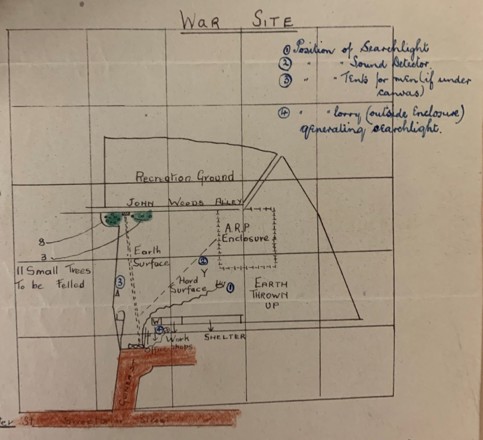 WAR SITE
① Position of Searchlight
② " " Sound Detector.
③ " " Tents for men (if under
canvas)
④ " " lorry (outside Enclosure)
generating searchlight.
Recreation Ground
JOHN WOODS ALLEY
A.R.P
Enclosure
8
3
Earth
Surface
11 Small Trees
To be Felled
③
A
Y
Hard
Surface
①
EARTH
THROWN
UP
SHELTER
Work
shops